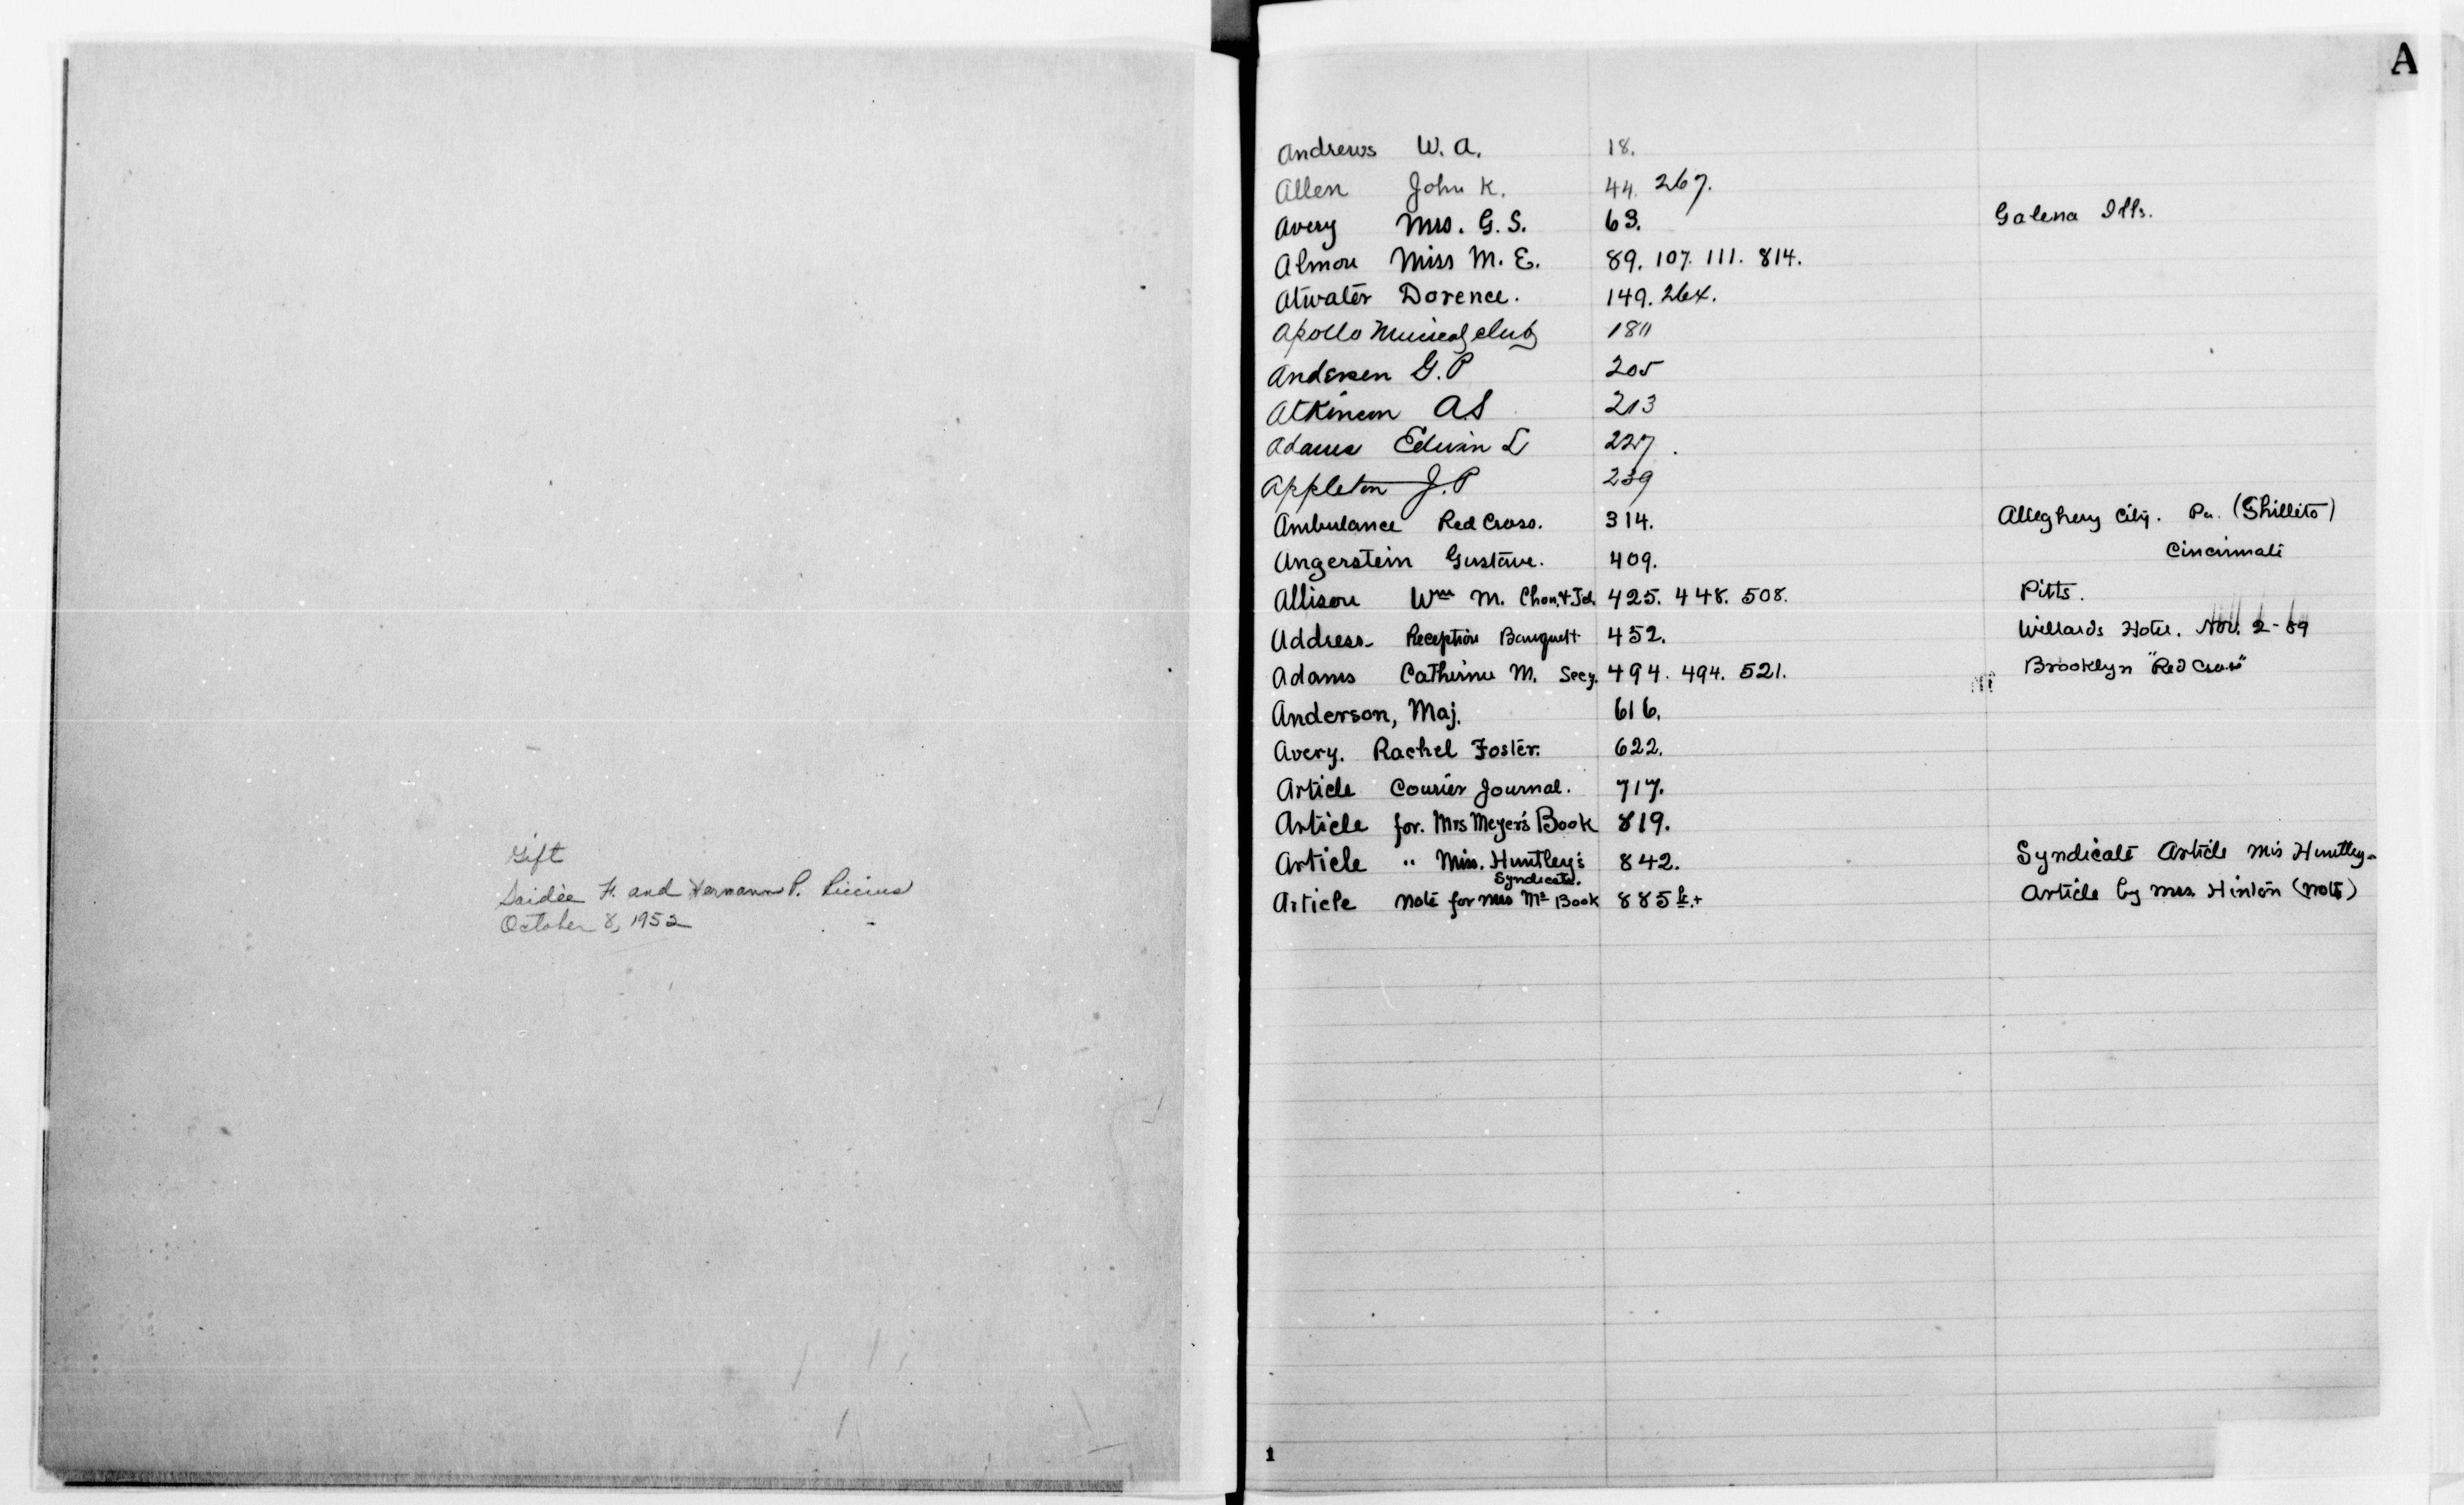 Gift
Saidée F. and Hermann P. Riccius
October 8, 1952
A
Andrews W. A. 18.
Allen John K. 44. 267.
Avery Mrs. G. S. 63. Galena Ills.
Almon Miss M. E. 89. 107. 111. 814.
Atwater Dorence. 149. 264.
Apollo Musical club
Andersen G. P 205
Atkinson A S 213
Adams Edwin L 227.
Appleton J. P 239
Ambulance Red Cross. 314. Allegheny City. Pa. (Shillito)
Angerstein Gustave. 409. Cincinnati
Allison Wm M. 425. 448. 508. Pitts.
Address- Reception Banquett 452. Willards Hotel. Nov. 2-89
Adams Catherine M. Secy. 494. 494. 521. Brooklyn "Red Cross"
Anderson, Maj. 616.
Avery. Rachel Foster. 622.
Article Courier Journal. 717.
Article for. Mrs Meyer's Book 819.
Article " Miss. Huntley's 842. Syndicate Article Mis Huntley-
Syndicate.
Article Note for Mrs Ms Book 885 Article by Mrs. Hinton (Note)
1